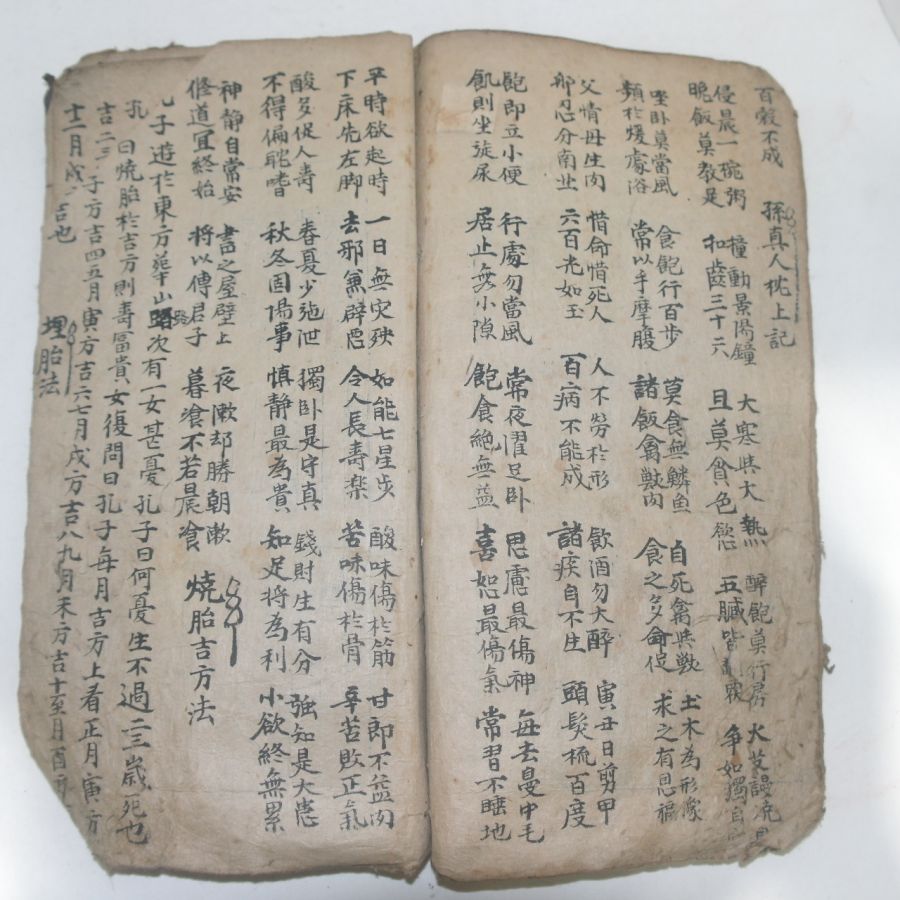 百穀不成 孫真人枕上記
侵晨一碗粥 撞動景陽鐘 大寒與大熱 醉飽莫行房 火艾謾燒
晚飯莫教足 扣齒三十六 且莫貪色慾 五臟皆 爭如獨自
坐卧莫當風 食飽行百步 莫食無鱗魚 自死禽與獸 土木為形像
頻於煖處浴 常以手摩腹 諸飯禽獸肉 食之多命促 求之有恩福
父情母生肉 惜命惜死人 人不勞於形 飲酒勿大醉 寅丑日剪甲
那忍分南北 六百光如玉 百病不能成 諸疾自不生 頭髮梳百度
飽即立小便 行處勿當風 常夜濯足卧 思慮最傷神 每去鼻中毛
飢則坐旋尿 居止無小隙 飽食絶無益 喜恕最傷氣 常習不唾地
平時欲起時 一日無灾殃 如能七星步 酸味傷於筋 甘即不益肉
下床先左脚 去邪兼辟惡 令人長壽楽 苦味傷於骨 辛苦敗正氣
酸多促人壽 春夏少施泄 獨卧是守真 錢財生有分 強知是大患
不得偏耽嗜 秋冬固陽事 慎静最為貴 知足將為利 小欲終無累
神静自常安 書之屋壁上 夜漱却勝朝漱
修道宜終始 將以傳君子 暮飡不若晨飡 燒胎吉方法
孔子遊於東方華山路次有一女甚憂孔子曰何憂生不過二三歲死也
孔曰燒胎於吉方則壽富貴女復問曰孔子每月吉方上看正月寅方
吉二三子方吉四五月寅方吉六七月戌方吉八九月未方吉十至月酉方
十二月戌方吉也 埋胎法